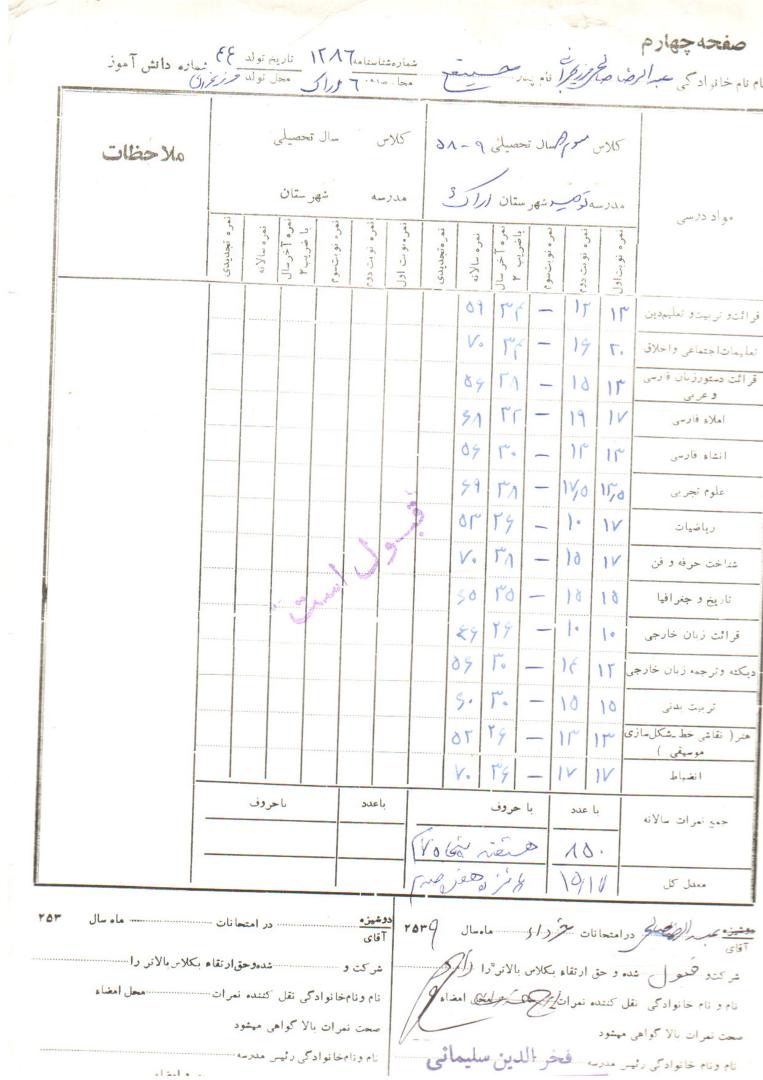 صفحه چهارم
نام نام خانوادگی عبدالرضا نام پدر شماره شناسنامه ۱۲۸۶ تاریخ تولد ۴۴ شماره دانش آموز
محل تولد
مواد درسی
کلاس سوم سال تحصیلی ۹-۵۸
مدرسه توحید شهرستان اراک
کلاس سال تحصیلی
مدرسه شهرستان
ملاحظات
نمره نوبت اول نمره نوبت دوم نمره نوبت سوم نمره آخر سال با ضریب ۲ نمره سالانه نمره تجدیدی نمره نوبت اول نمره نوبت دوم نمره نوبت سوم نمره آخر سال با ضریب ۲ نمره سالانه نمره تجدیدی
قرائت و تربیت و تعلیم دین ۱۳ ۱۲ — ۳۴ ۵۹
تعلیمات اجتماعی و اخلاق ۲۰ ۱۶ — ۳۴ ۷۰
قرائت دستور زبان فارسی و عربی ۱۳ ۱۵ — ۲۸ ۵۶
املاء فارسی ۱۷ ۱۹ — ۳۲ ۶۸
انشاء فارسی ۱۳ ۱۳ — ۳۰ ۵۶
علوم تجربی ۱۳٫۵ ۱۷٫۵ — ۳۸ ۶۹
ریاضیات ۱۷ ۱۰ — ۲۶ ۵۳
شناخت حرفه و فن ۱۷ ۱۵ — ۳۸ ۷۰
تاریخ و جغرافیا ۱۵ ۱۵ — ۳۵ ۶۵
قرائت زبان خارجی ۱۰ ۱۰ — ۲۶ ۴۶
دیکته و ترجمه زبان خارجی ۱۲ ۱۴ — ۳۰ ۵۶
تربیت بدنی ۱۵ ۱۵ — ۳۰ ۶۰
هنر ( نقاشی خط ـ شکل سازی موسیقی ) ۱۳ ۱۳ — ۲۶ ۵۲
انضباط ۱۷ ۱۷ — ۳۶ ۷۰
قبول است
با عدد با حروف با عدد با حروف
جمع نمرات سالانه ۸۵۰
معدل کل ۱۵/۱۷
دوشیزه آقای در امتحانات خرداد ماه سال ۲۵۳۹
شرکت و قبول شده و حق ارتقاء بکلاس بالاتر را دارد
نام و نام خانوادگی نقل کننده نمرات محل امضاء
صحت نمرات بالا گواهی میشود
نام و نام خانوادگی رئیس مدرسه فخرالدین سلیمانی
دوشیزه آقای در امتحانات ماه سال ۲۵۳
شرکت و شده و حق ارتقاء بکلاس بالاتر را
نام و نام خانوادگی نقل کننده نمرات محل امضاء
صحت نمرات بالا گواهی میشود
نام و نام خانوادگی رئیس مدرسه